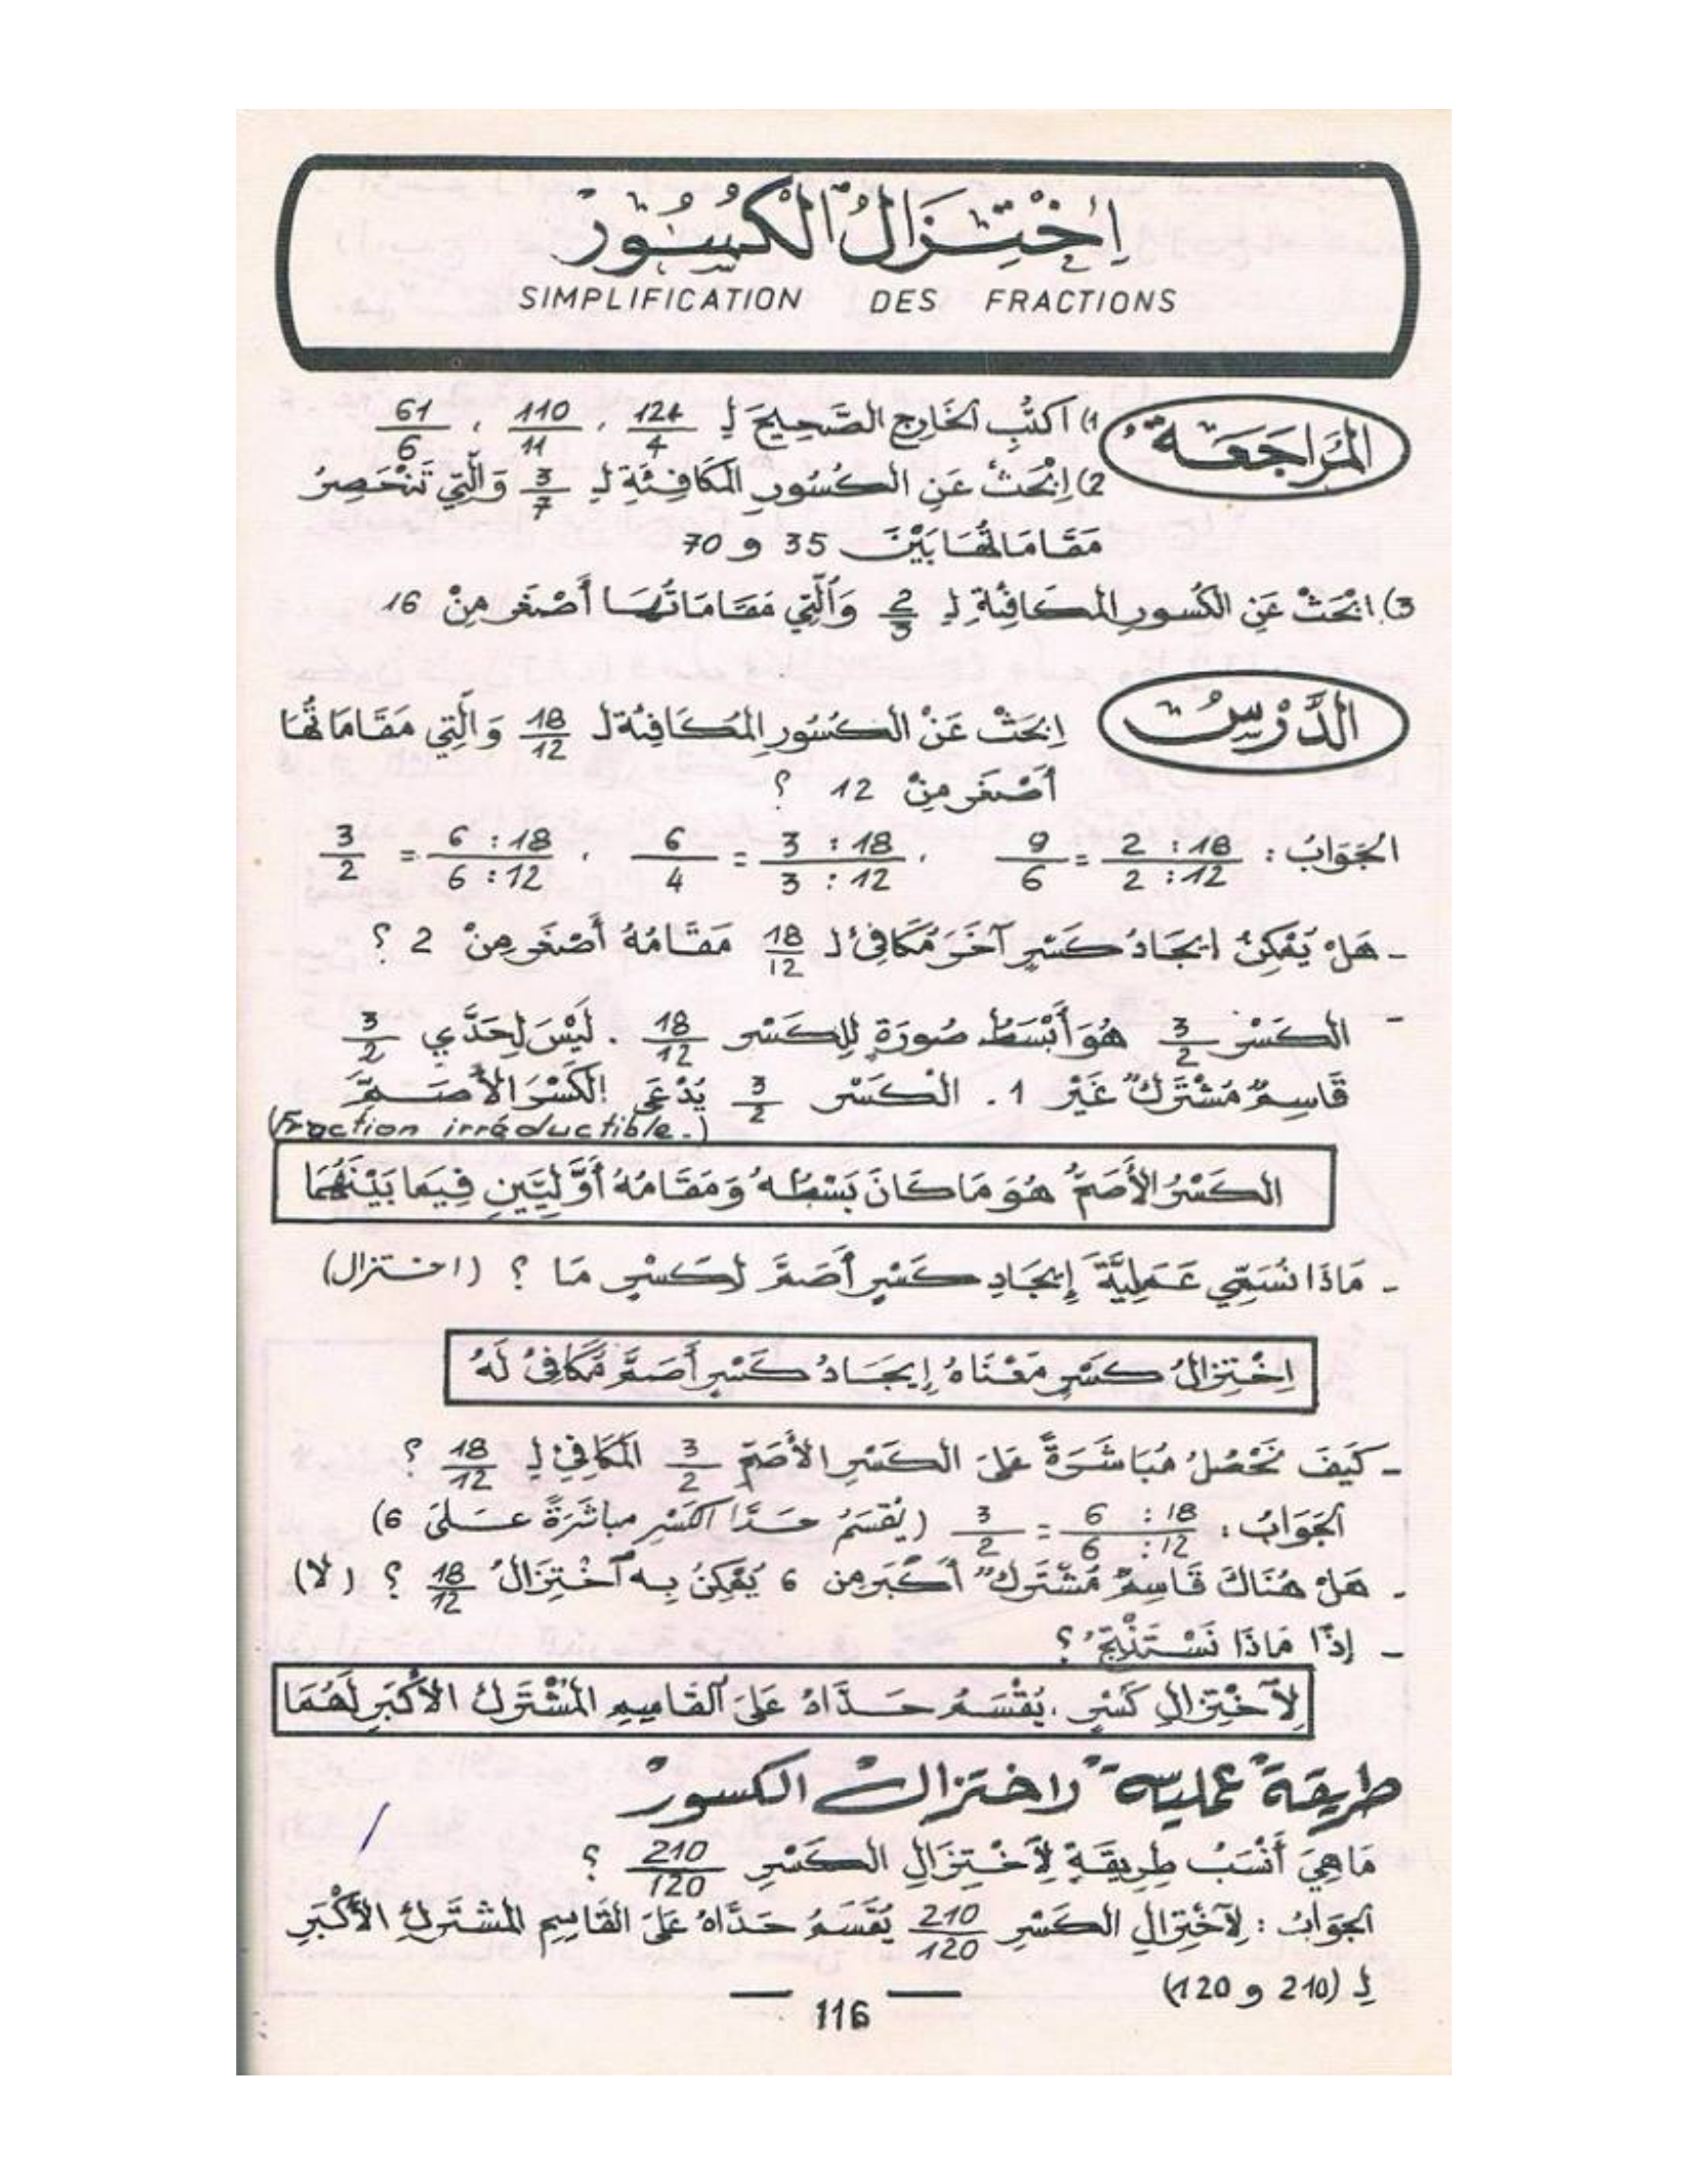 اِخْتِزَالُ الْكُسُورْ
SIMPLIFICATION DES FRACTIONS
المُرَاجَعَةُ
1) اُكْتُبِ الخَارِجَ الصَّحِيحَ لِ 124/4 ، 110/11 ، 61/6
2) اِبْحَثْ عَنِ الكُسُورِ المُكَافِئَةِ لِـ 3/7 وَالَّتِي تَنْحَصِرُ
مَقَامَاتُهَا بَيْنَ 35 و 70
3). ابْحَثْ عَنِ الكُسورِ المُكَافِئَةِ لِ 2/3 وَالَّتِي مَقَامَاتُهَا أَصْغَر مِنْ 16
الدَّرْسُ
اِبْحَثْ عَنْ الكُسُورِ المُكَافِئَة لـ 18/12 وَالَّتِي مَقَامَاتُهَا
أَصْغَر مِنْ 12 ؟
الجَوَابُ : 2 : 18 / 2 : 12 = 9/6 ، 3 : 18 / 3 : 12 = 6/4 ، 6 : 18 / 6 : 12 = 3/2
- هَلْ يُمْكِنُ ايجَادُ كَسْرٍ آخَرَ مُكَافِئ لـ 18/12 مَقَامُهُ أَصْغَر مِنْ 2 ؟
- الكَسْرُ 3/2 هُوَ أَبْسَطُ صُورَةٍ لِلكَسْرِ 18/12 . لَيْسَ لِحَدَّي 3/2
قَاسِمٌ مُشْتَرَكٌ غَيْر 1 . الْكَسْر 3/2 يُدْعَى الكَسْرَ الأَصَمَّ
(Fraction irréductible.)
الكَسْرُ الأَصَمُّ هُوَ مَا كَانَ بَسْطُهُ وَمَقَامُهُ أَوَّلِيَّيْنِ فِيمَا بَيْنَهُمَا
- مَاذَا نُسَمِّي عَمَلِيَّةَ إِيجَادِ كَسْرٍ أَصَمَّ لِكَسْرٍ مَا ؟ (اختزال)
اِخْتِزَالُ كَسْرٍ مَعْنَاهُ إِيجَادُ كَسْرٍ أَصَمَّ مُكَافِئٍ لَهُ
- كَيْفَ نَحْصُلُ مُبَاشَرَةً عَلَى الكَسْرِ الأَصَمِّ 3/2 المُكَافِئِ لِ 18/12 ؟
الجَوَابُ : 6 : 18 / 6 : 12 = 3/2 (يُقْسَمُ حَدَّا الكَسْرِ مباشَرَةً عَلَى 6)
- هَلْ هُنَاكَ قَاسِمٌ مُشْتَرَكٌ أَكْبَر مِن 6 يُمْكِنُ بِهِ اخْتِزَالُ 18/12 ؟ (لا)
- إِذًا مَاذَا نَسْتَنْتِجُ ؟
لِاخْتِزَالِ كَسْرٍ ، يُقْسَمُ حَدَّاهُ عَلَى القَاسِمِ المُشْتَرَكِ الأَكْبَرِ لَهُمَا
طريقةٌ عمليةٌ لاختزالِ الكسورْ
مَاهِيَ أَنْسَبُ طِرِيقَةٍ لِاخْتِزَالِ الكَسْرِ 210/120 ؟
الجَوَابُ : لِاخْتِزَالِ الكَسْرِ 210/120 يُقْسَمُ حَدَّاهُ عَلَى القَاسِمِ المشتَرَكِ الأَكْبَرِ
لِ (210 و 120)
— 116 —